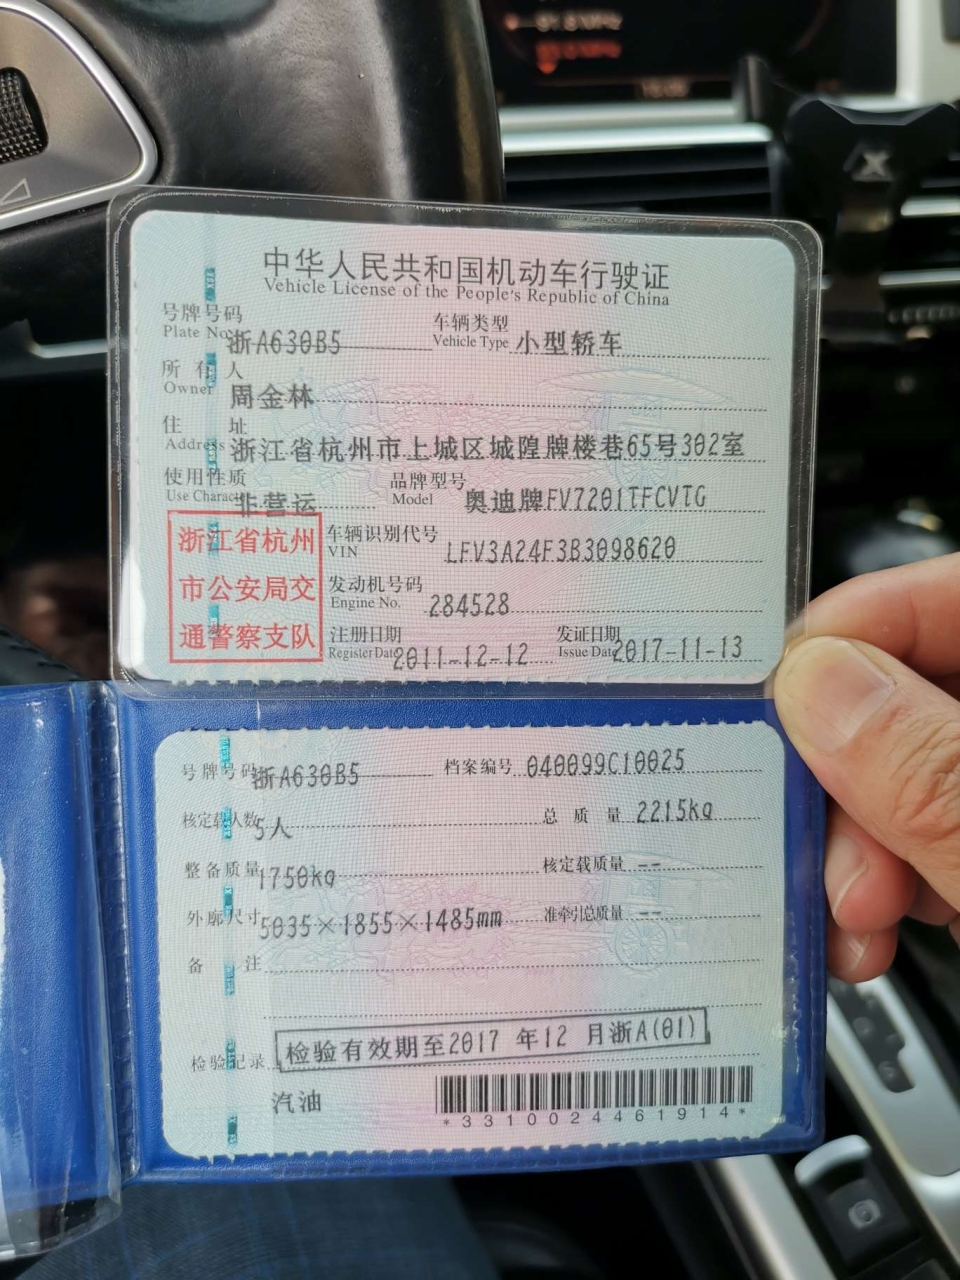 中华人民共和国机动车行驶证
Vehicle License of the People's Republic of China
号牌号码 浙A630B5 车辆类型 小型轿车
Plate No. Vehicle Type
所有人 周金林
Owner
住址 浙江省杭州市上城区城隍牌楼巷65号302室
Address
使用性质 非营运 品牌型号 奥迪牌FV7201TFCVTG
Use Character Model
浙江省杭州
市公安局交
通警察支队
车辆识别代号 LFV3A24F3B3098620
VIN
发动机号码 284528
Engine No.
注册日期 2011-12-12 发证日期 2017-11-13
Register Date Issue Date
号牌号码 浙A630B5 档案编号 040099C10025
核定载人数 5人 总质量 2215kg
整备质量 1750kg 核定载质量 --
外廓尺寸 5035×1855×1485mm 准牵引总质量 --
备注
检验记录 检验有效期至2017 年12 月浙A(01)
汽油
*3310024461914*